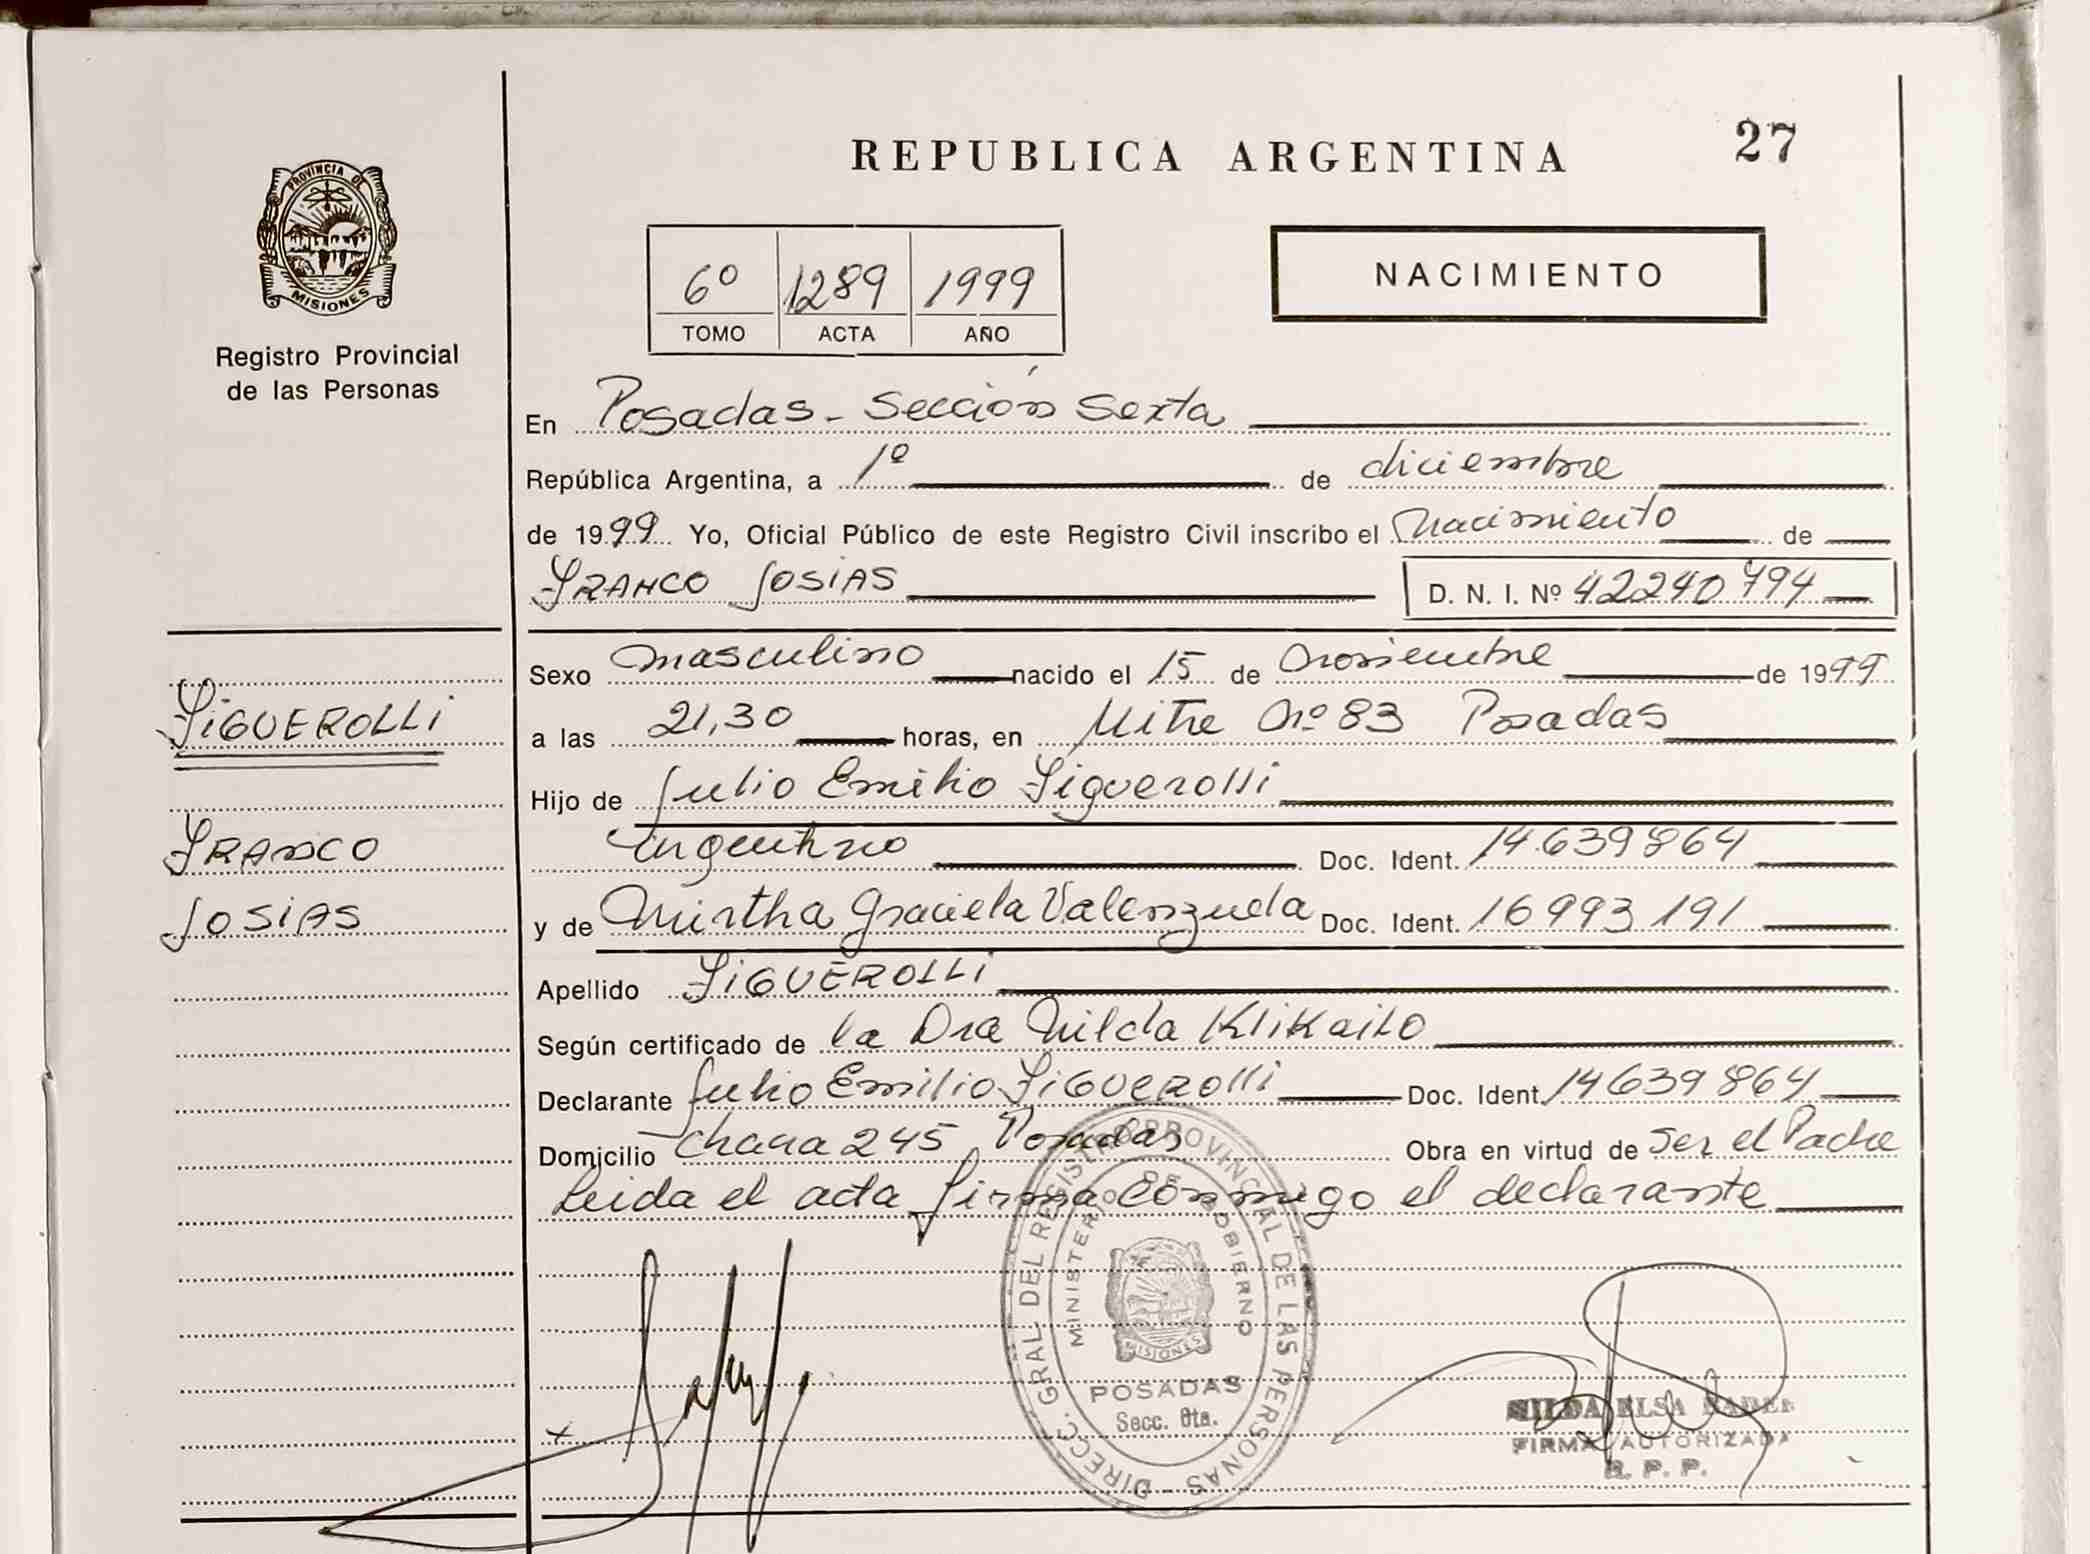 27
REPUBLICA ARGENTINA
PROVINCIA DE
MISIONES
Registro Provincial
de las Personas
NACIMIENTO
6º 1289 1999
TOMO ACTA AÑO
En Posadas - Sección Sexta
República Argentina, a 1º de diciembre
de 1999 Yo, Oficial Público de este Registro Civil inscribo el Nacimiento de
FRANCO JOSIAS D. N. I. Nº 42240794
Sexo masculino nacido el 15 de noviembre de 1999
FIGUEROLLI
a las 21,30 horas, en Mitre Nº 83 Posadas
Hijo de Julio Emilio Figuerolli
FRANCO
argentino Doc. Ident. 14.639864
JOSIAS
y de Mirtha Graciela Valenzuela Doc. Ident. 16993191
Apellido FIGUEROLLI
Según certificado de la Dra Nilda Klikailo
Declarante Julio Emilio FIGUEROLLI Doc. Ident. 14639864
Domicilio Chacra 245 Posadas Obra en virtud de ser el Padre
Leida el acta firma conmigo el declarante
DIRECC. GRAL DEL REGISTRO PROVINCIAL DE LAS PERSONAS
MINISTERIO DE GOBIERNO
MISIONES
POSADAS
Secc. 6ta.
ELSA
FIRMA AUTORIZADA
R. P. P.